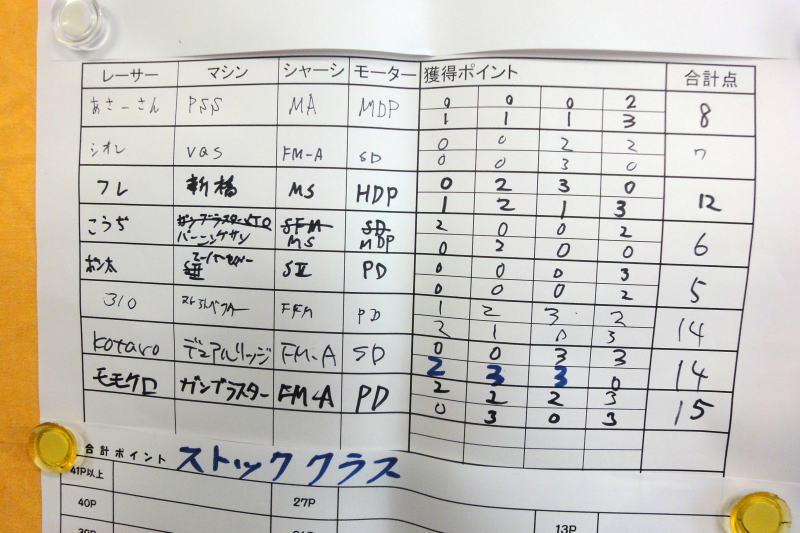 レーサー マシン シャーシ モーター 獲得ポイント 合計点
あさーさん PSS MA MDP 0 0 0 2 8
1 1 1 3
シオレ VQS FM-A SD 0 0 2 2 7
0 0 3 0
フレ 新橋 MS HDP 0 2 3 0 12
1 2 1 3
こうぢ ガンブラスターXTO SFM SD 2 0 0 2 6
バーニングサン MS MDP 0 2 0 0
ポン太 SⅡ PD 0 0 0 3 5
0 0 0 2
310 PD 1 2 3 2 14
2 1 0 3
kotaro デュアルリッジ FM-A SD 0 0 3 3 14
2 3 3 0
モモクロ ガンブラスター FM-A PD 2 2 2 3 15
0 3 0 3
合計ポイント ストック クラス
41P以上
40P 27P
13P